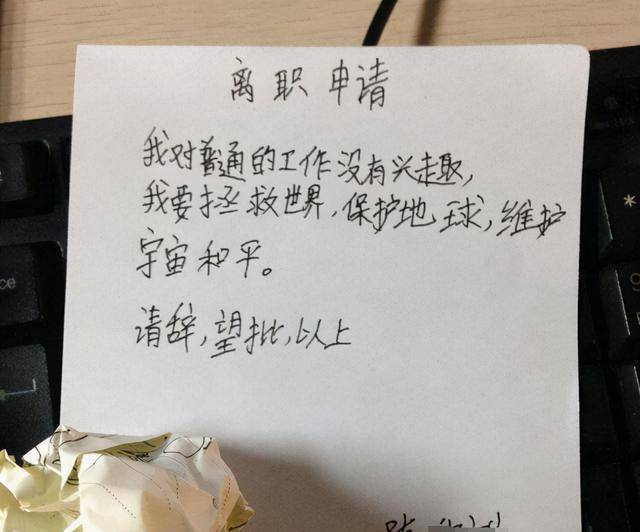 离职申请
我对普通的工作没有兴趣,
我要拯救世界,保护地球,维护
宇宙和平。
请辞,望批,以上